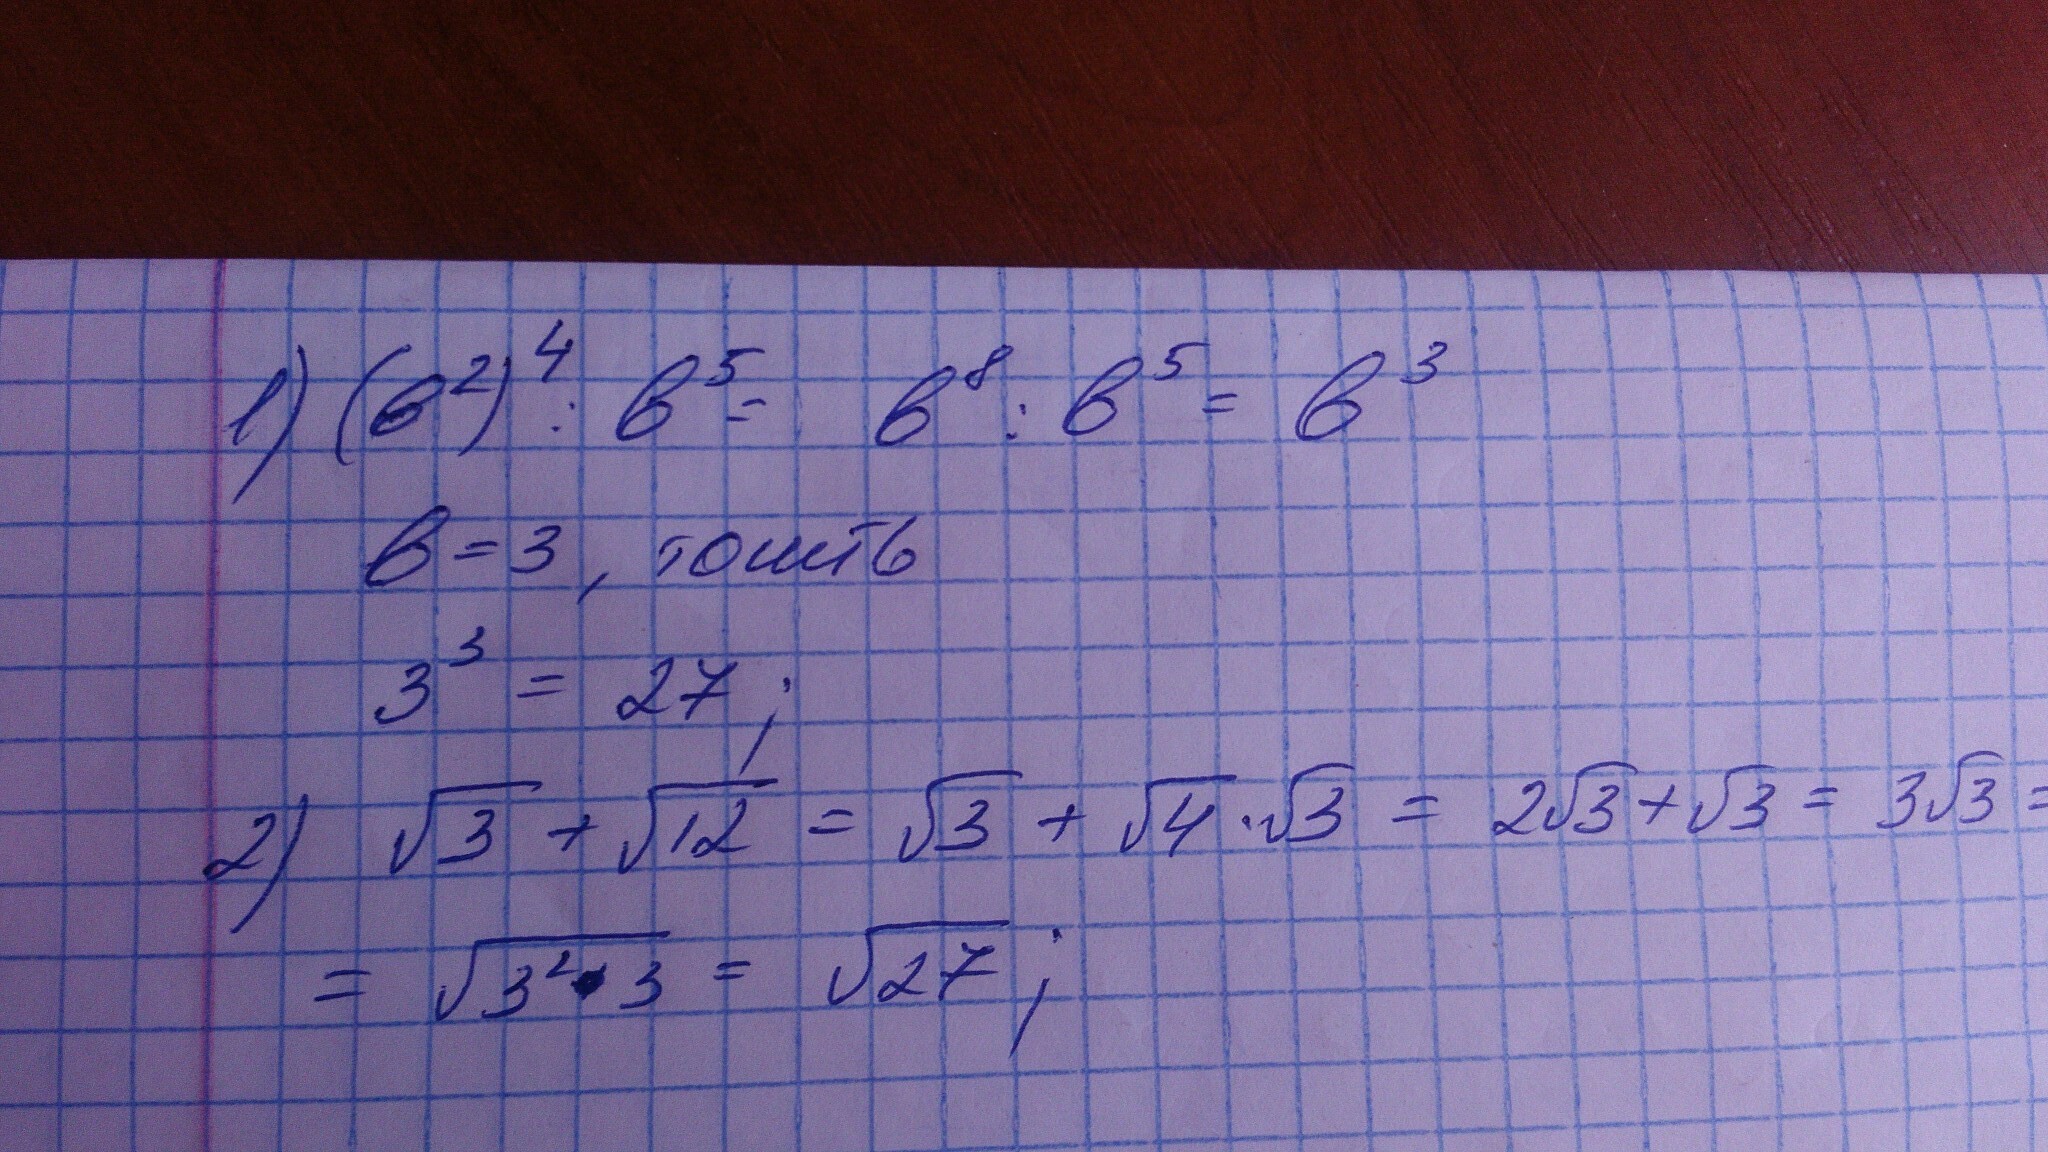 1) (в²)⁴ : в⁵ = в⁸ : в⁵ = в³
в = 3, тошть
3³ = 27;
2) √3 + √12 = √3 + √4 · √3 = 2√3 + √3 = 3√3 =
= √3²·3 = √27;